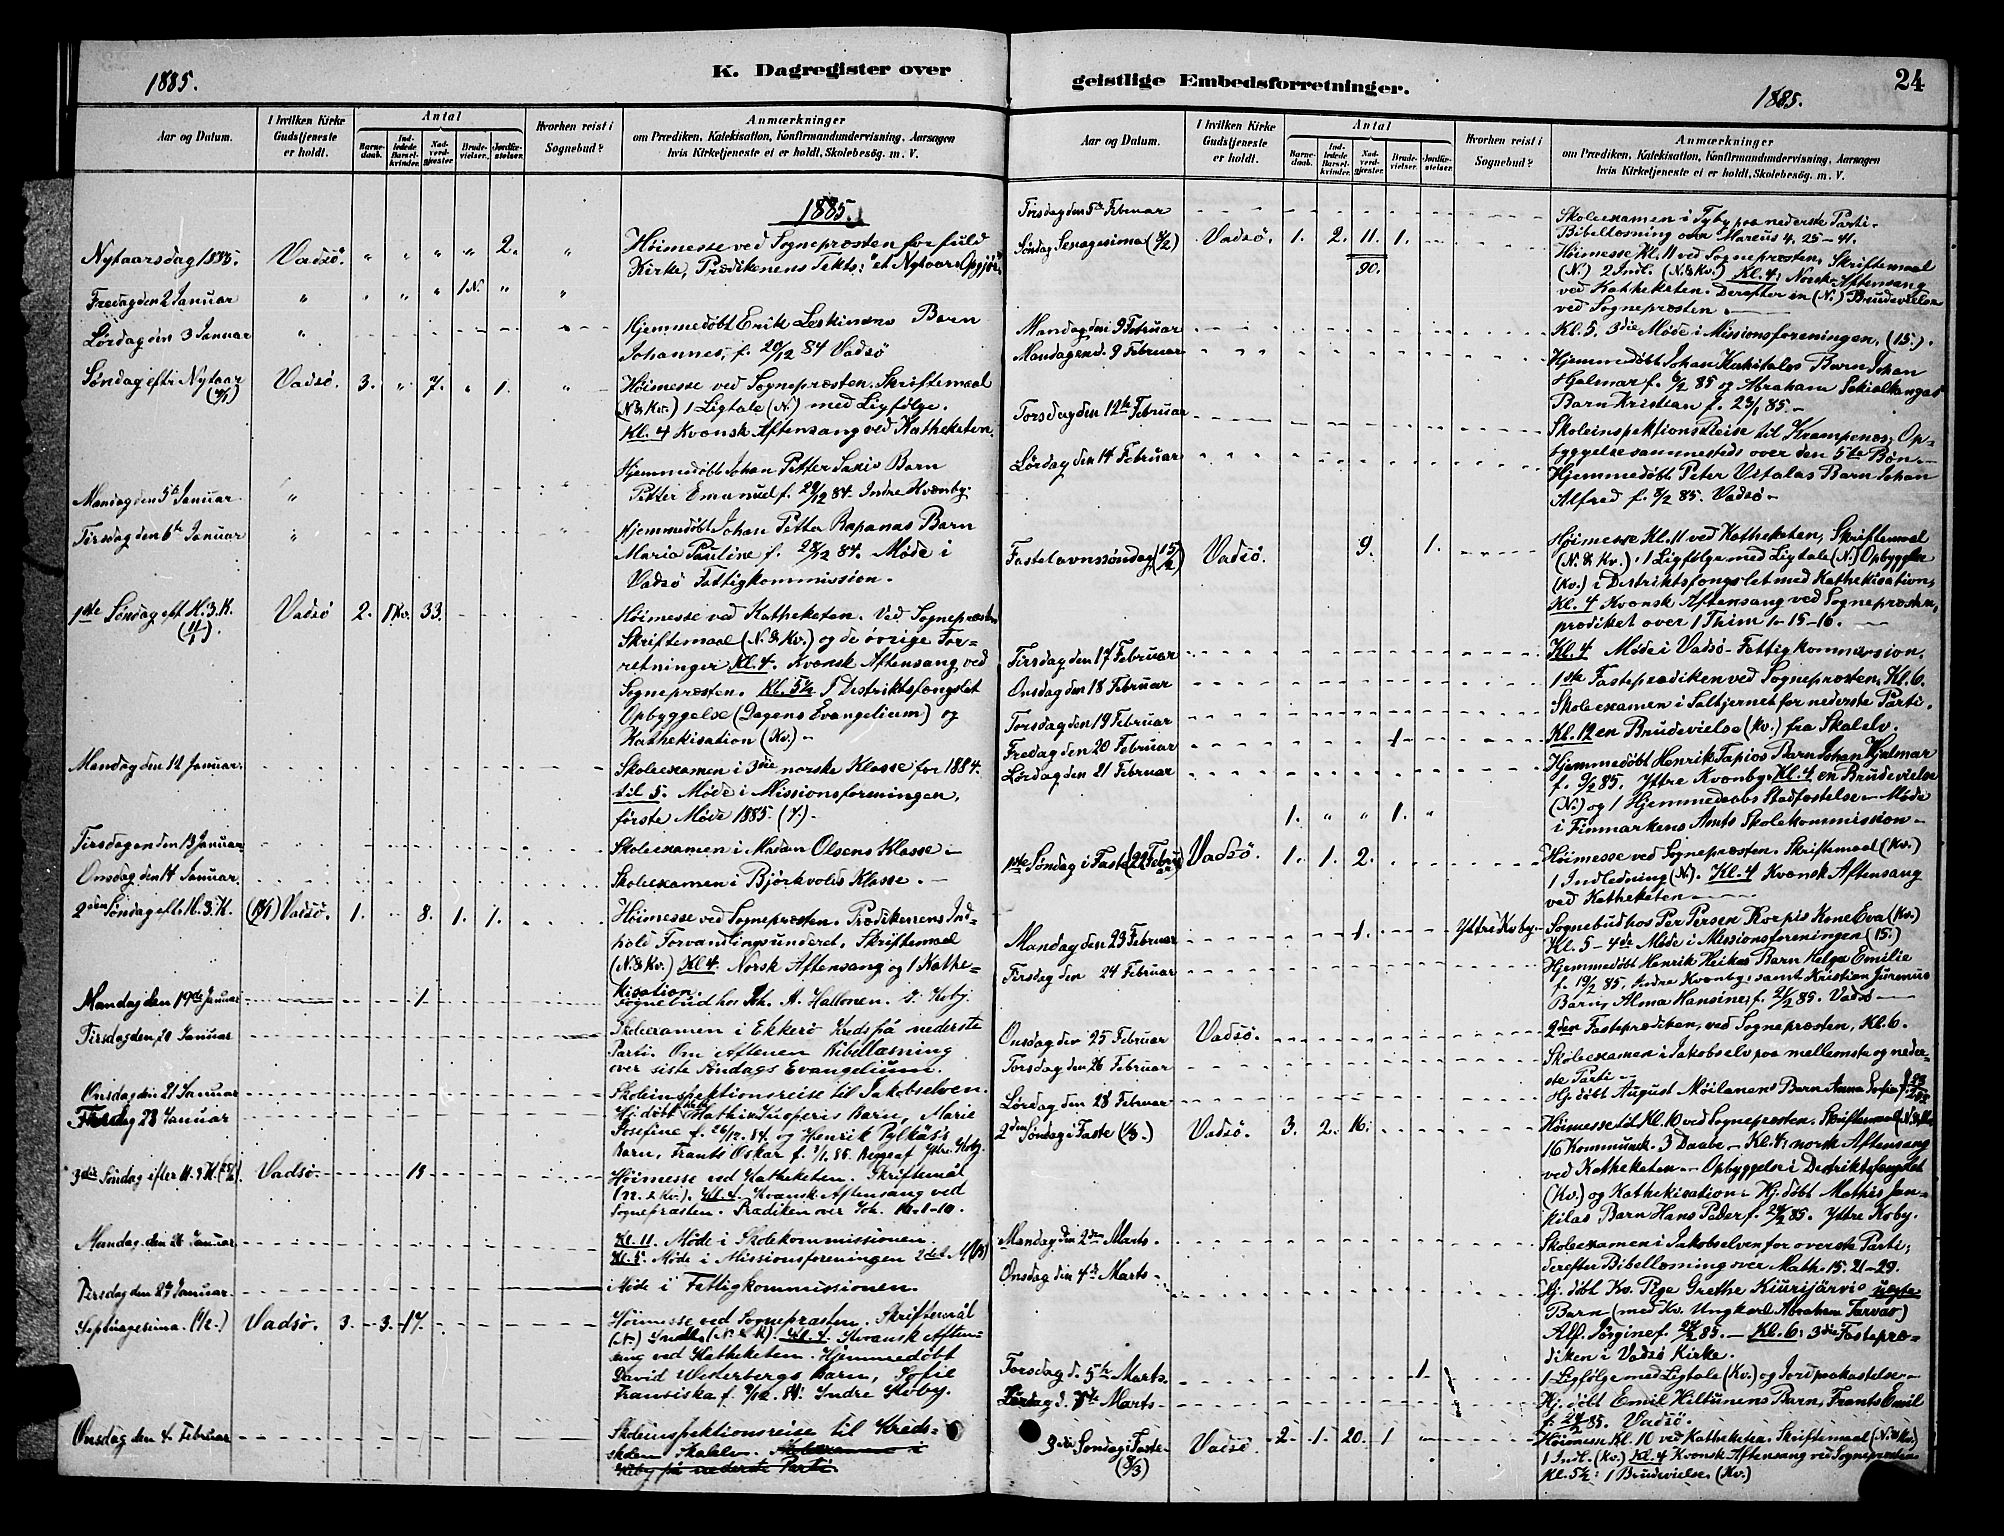 1885.
K. Dagregister over
Aar og Datum.
I hvilken Kirke Gudstjeneste er holdt.
Antal
Barnedaab.
Indledede Barselkvinder.
Nadverdgjester.
Brudevielser.
Jordfæstelser.
Hvorhen reist i Sognebud?
Anmærkninger
om Prædiken, Katekisation, Konfirmandundervisning, Aarsagen
hvis Kirketjeneste ei er holdt, Skolebesøg. m. V.
1885.
Nytaarsdag 1885. Vadsø. " " " " 2. " Høimesse ved Sognepræsten for fuld
Kirke, Prædikenens Tekst: "et Nytaars Opgjør".
Fredag den 2 Januar " " " " 1 N. " "
Lørdag den 3 Januar " Hjemmedøbt Erik Leskinens Barn
Johannes, f. 20/12 84 Vadsø
Søndag eftr Nytaar (4/1) Vadsø. 3. " 7. " 1. " Høimesse ved Sognepræsten. Skriftemaal
(N & Kv.) 1 Ligtale (N.) med Ligfølge.
Kl. 4 Kvænsk Aftensang ved Katheketen.
Hjemmedøbt Johan Petter Saxis Barn
Mandag den 5te Januar " Petter Emanuel f. 29/12 84. Indre Kvænby.
Tirsdag den 6te Januar " Hjemmedøbt Johan Petter Rapanas Barn
Maria Pauline f. 28/12 84. Møde i
Vadsø Fattigkommission.
1ste Søndag eft H. 3. K. (11/1) Vadsø 2. 1Kv. 33. Høimesse ved Katheketen. Ved Sognepræsten
Skriftemaal (N. & Kv.) og de øvrige For-
retninger Kl. 4. Kvænsk Aftensang ved
Sognepræsten. Kl. 5½ I Distriktsfængslet
Opbyggelse (Dagens Evangelium) og
Kathekisation (Kv.) –
Mandag den 12 Januar. Skoleexamen i 3die norske Klasse for 1884.
til 5. Møde i Missionsforeningen,
første Møde 1885 (7.) –
Tirsdagen den 13 Januar Skoleexamen i Madam Olsens Klasse –
Onsdag den 14 Januar Skoleexamen i Bjørkvolds Klasse. –
2den Søndag eft. H. 3. K. (18/1) Vadsø. 1. 8. 1. 1. Høimesse ved Sognepræsten. Prædikenens Ind-
hold Forvandlingsunderet. Skriftemaal
(N. & Kv.) Kl 4. Norsk Aftensang og 1 Kathe-
kisation.
Mandag den 19de Januar 1 Sognebud hos Joh. A. Hallonen. I. Kvby.
Tirsdag den 20 Januar Skoleexamen i Ekkerø Kreds på nederste
Parti. Om Aftenen Bibellæsning
over siste Søndags Evangelium.
Onsdag den 21 Januar Skoleinspektionsreise til Jakobselven.
Fredag 23 Januar Hj. døbt Mathis Barn, Marie
Josefine f. 26/12. 84. og Henrik Pylkäs's
Barn, Frants Oskar f. 3/1. 85. Ytre Kvby.
3die Søndag efter H. 3 K. (25/1) Vadsø. 13 Høimesse ved Katheketen. Skriftemål
(N. & Kv.). Kl. 4. Kvænsk Aftensang ved
Sognepræsten. Prædiken over Joh. 10. 1-10.
Mandag den 26 Januar Kl. 11. Møde i Skolekommissionen.
Kl. 5. Møde i Missionsforeningen 2det M
Tirsdag den 27 Januar Møde i Fattigkommissionen.
Septuagesima. (1/2.) Vadsø. 3. 3. 17. Høimesse ved Sognepræsten. Skriftemål
(N.) Indl. (N & K). Kl. 4. Kvænsk Aften-
sang ved Katheketen. Hjemmedøbt
David Wederbergs Barn, Sofie
Fransiska f. 9/12. 84. Indre Kvby.
Onsdag den 4. Februar Skoleinspektionsreise til Kreds-
skolen Skalelv. Skoleexamen i
Kiby på nederste Parti
geistlige Embedsforretninger.
24
1885.
Aar og Datum.
I hvilken Kirke Gudstjeneste er holdt.
Antal
Barnedaab.
Indledede Barselkvinder.
Nadverdgjester.
Brudevielser.
Jordfæstelser.
Hvorhen reist i Sognebud?
Anmærkninger
om Prædiken, Katekisation, Konfirmandundervisning, Aarsagen
hvis Kirketjeneste ei er holdt, Skolebesøg. m. V.
Torsdag den 5te Februar Skoleexamen i Tyby paa nederste Parti.
Bibellæsning om Marcus 4. 25-41.
Søndag Sexagesima (8/2) Vadsø. 1. 2. 11. 1. Høimesse Kl. 11 ved Sognepræsten, Skriftemaal
90. (N.) 2 Indl. (N. & Kv.) Kl. 4. Norsk Aftensang
ved Katheketen. Derefter en (N.) Brudevielse
ved Sognepræsten.
Mandag den 9 Februar Kl. 5. 3die Møde i Missionsforeningen, (15.).
Mandagen d. 9 Februar Hjemmedøbt Johan Karkitalos Barn Johan
Hjalmar f. 6/2 85 og Abraham Sakialkangas
Barn Kristian f. 23/1 85. –
Torsdag den 12te Februar Skoleinspektions Reise til Krampenæs. Op-
byggelse sammesteds over den 5te Bøn –
Lørdag den 14 Februar Hjemmedøbt Peter Vitalas Barn Johan
Alfred f. 3/2 85. Vadsø –
Fastelavnssøndag (15/2) Vadsø. 9. 1. Høimesse Kl. 11 ved Katheketen, Skriftemaal
(N. & Kv.). 1 Ligfølge med Ligtale (N.) Opbyggelse
(Kv.) i Distriktsfængslet med Kathekisation,
Kl. 4 Kvænsk Aftensang ved Sognepræsten,
prædiket over 1 Thim 1. 15-16. –
Tirsdag den 17 Februar Kl. 4 Møde i Vadsø Fattigkommission.
Onsdag den 18 Februar 1ste Fasteprædiken ved Sognepræsten, Kl. 6.
Torsdag den 19 Februar Skoleexamen i Saltjernet for nederste Parti.
Fredag den 20 Februar 1 Kl. 12 en Brudevielse (Kv.) fra Skalelv.
Lørdag den 21 Februar Hjemmedøbt Henrik Tapios Barn Johan Hjalmar
f. 9/2 85. Yttre Kvænby. Kl. 4 en Brudevielse
1. " " 1. " (N.) og 1 Hjemmedaabs Stadfæstelse – Møde
i Finmarkens Amts Skolekommission –
1ste Søndag i Faste (22 Februar) Vadsø. 1. 1. 2. Høimesse ved Sognepræsten. Skriftemaal (Kv.)
1 Indledning (N.). Kl. 4 Kvænsk Aftensang
ved Katheketen –
Mandag den 23 Februar 1. Yttre Kvby. Sognebud hos Per Persen Korpis Kone Eva (Kv.)
Kl. 5 – 4de Møde i Missionsforeningen (15.)
Tirsdag den 24 Februar Hjemmedøbt Henrik Heikas Barn Helga Emilie
f. 19/2 85. Indre Kvænby, samt Kristian Jurenius
Barn, Alma Hansine, f. 21/2 85. Vadsø –
Onsdag den 25 Februar Vadsø. 2den Fasteprædiken, ved Sognepræsten, Kl. 6.
Torsdag den 26 Februar Skoleexamen i Jakobselv paa mellemste og neder-
ste Parti –
Lørdag den 28 Februar Hj. døbt August Möilanens Barn Anna Sofia
2den Søndag i Faste (1/3.) Vadsø. 3. 2. 16. Høimesse til Kl. 10 ved Sognepræsten. Skriftemaal
16 Kommunik. 3 Daabe – Kl. 4. norsk Aftensang
ved Katheketen – Opbyggelse i Distriktsfængslet
(Kv.) og Kathekisation. Hj. døbt Mathis Jan-
kilas Barn Hans Peder f. 24/2 85. Yttre Kvby.
Mandag den 2den Marts. Skoleexamen i Jakobselven for øverste Parti,
derefter Bibellæsning over Math. 15. 21-29.
Onsdag den 4de Marts – Hj. døbt Kv. Pige Grethe Kiurijärvis uægte
Barn (med Kv. Ungkarl Abraham Tarvas)
Alf. Jörgine f. 24/2 85. – Kl. 6. 3die Fastepræ-
diken i Vadsø Kirke.
Torsdag d. 5te Marts. 1 1 Ligfølge med Ligtale (Kv.) og Jordpaakastelse –
Lørdag d. 7de Marts – Hj. døbt Emil Hiltunens Barn, Frants Emil
Vadsø.
3die Søndag i Faste (8/3) Vadsø 2 1 20. 1 Høimesse Kl. 10 ved Katheketen. Skriftemaal (N. & Kv.)
1 Indl. (Kv.) Kl. 4 Kvænsk Aftensang ved Sognepræsten
Kl. 5½: 1 Brudevielse. (Kv.)